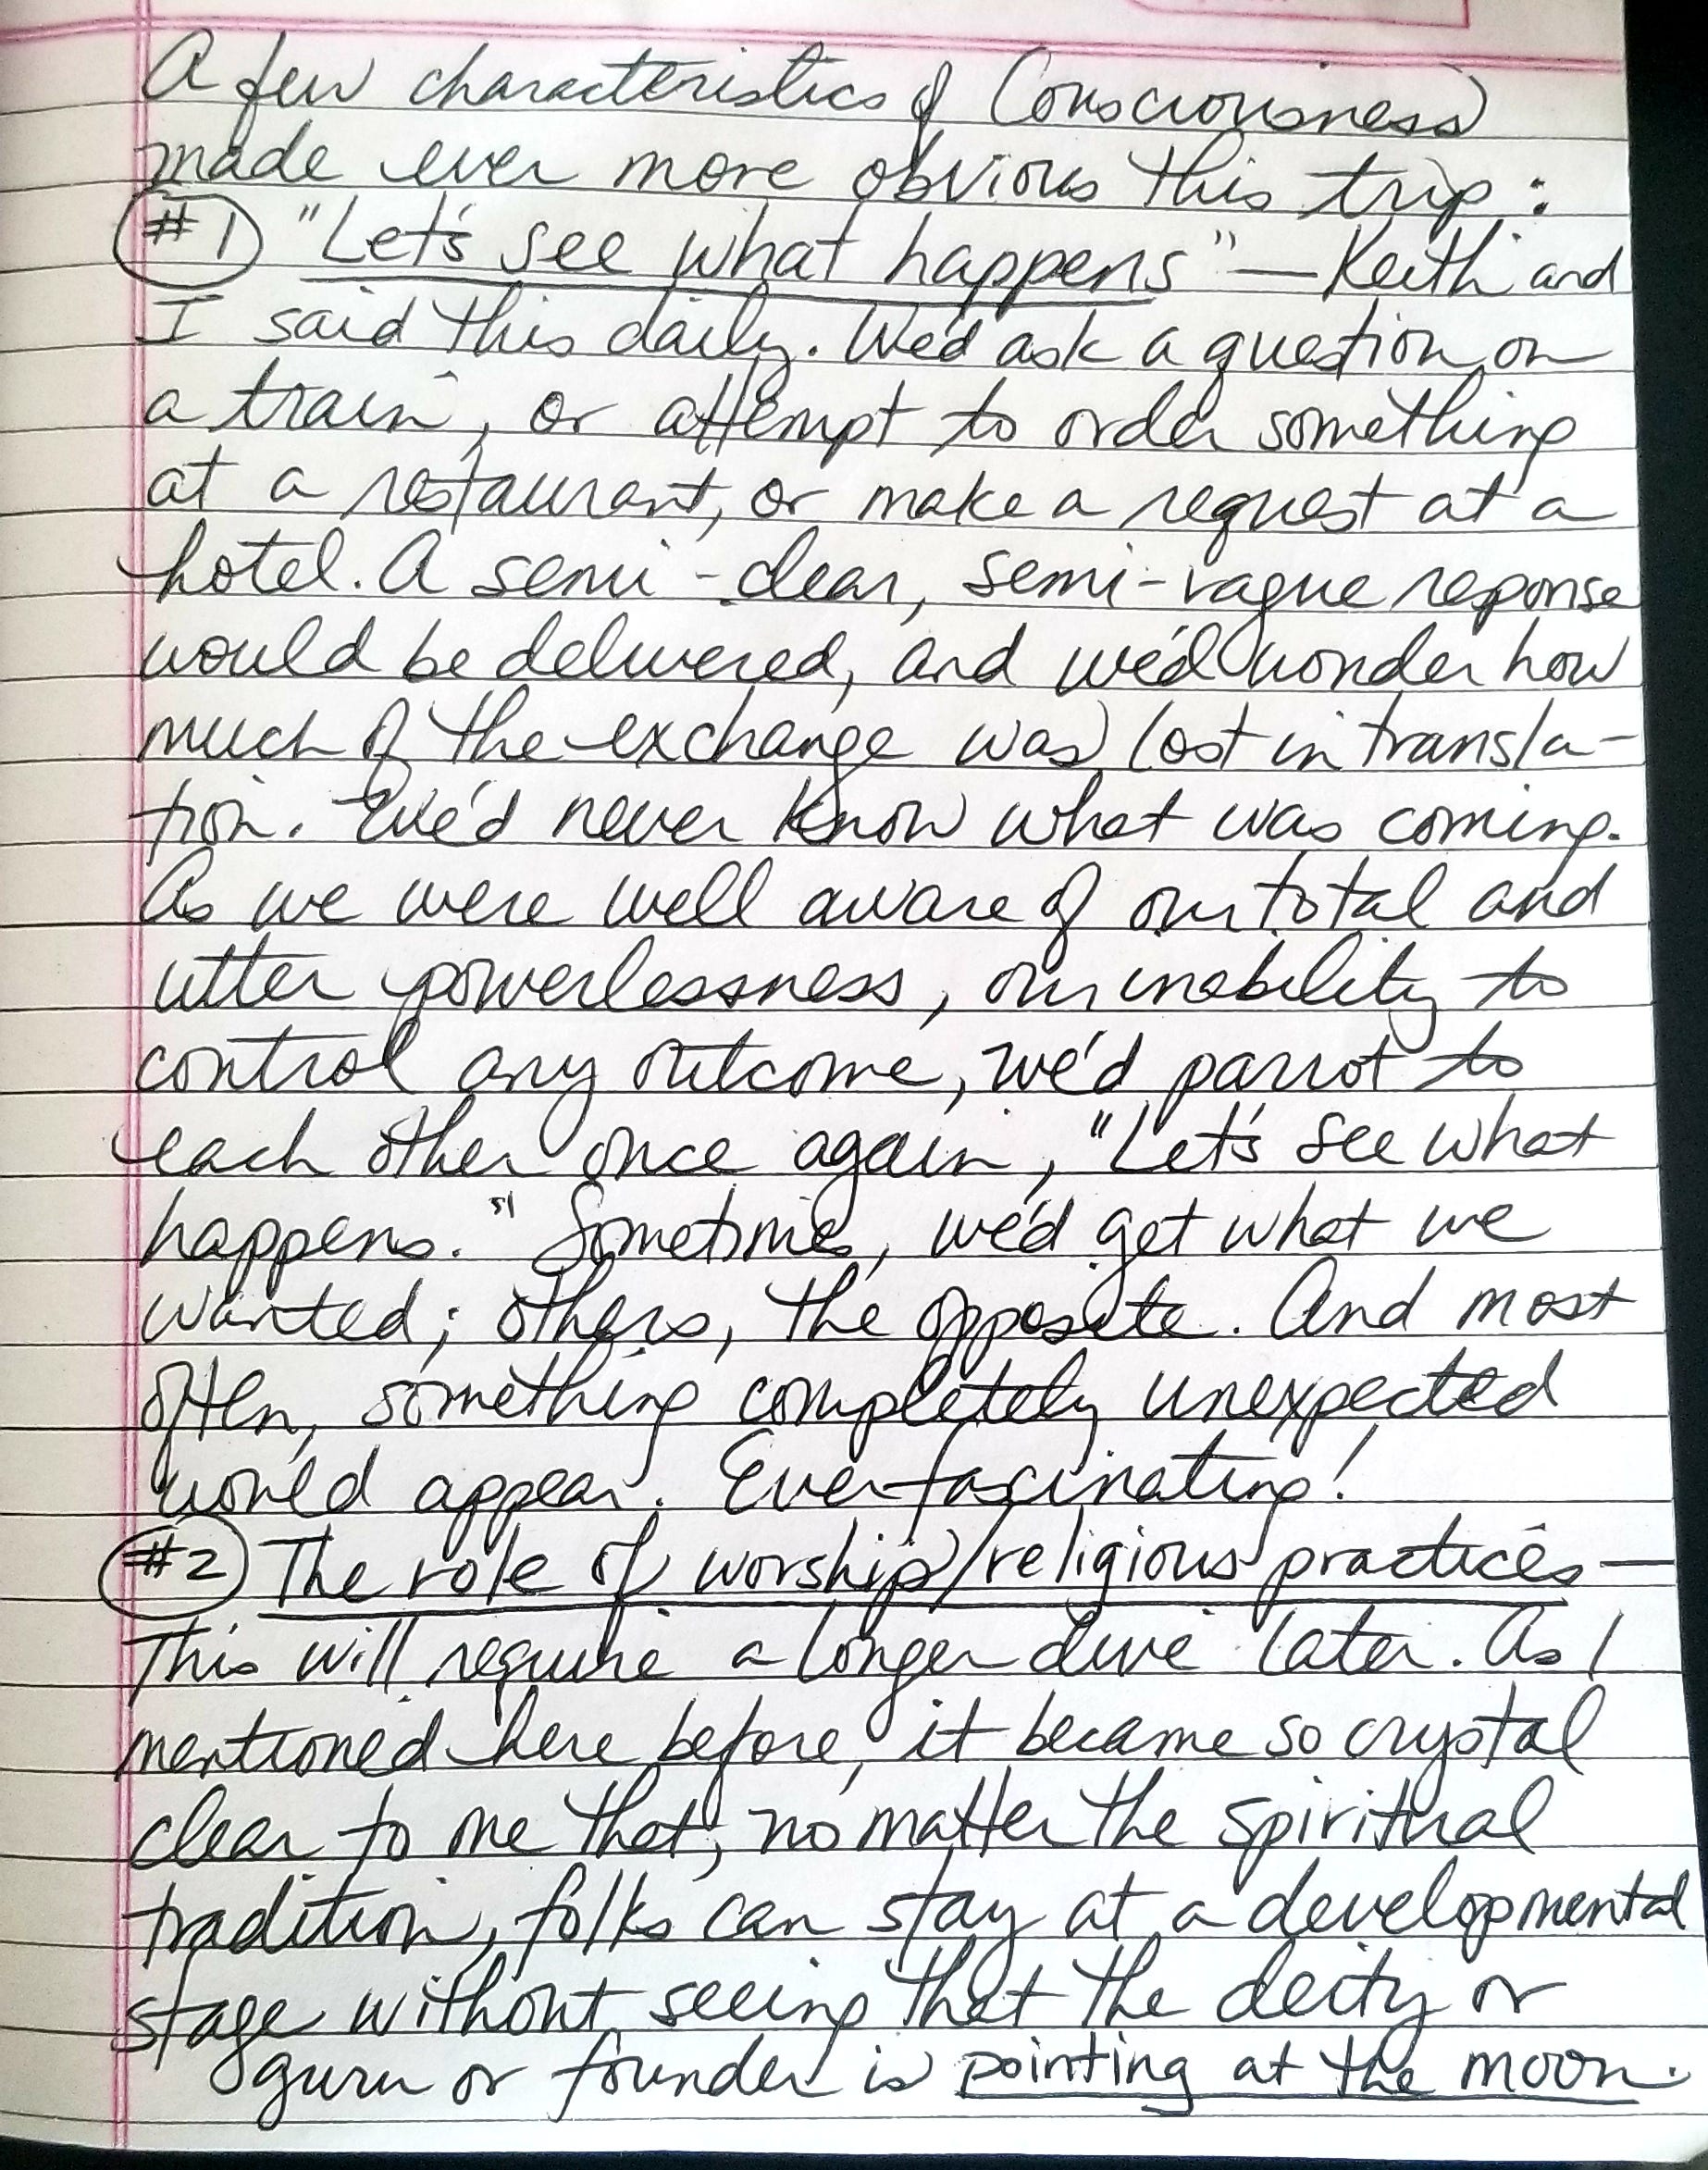 A few characteristics of Consciousness
made ever more obvious this trip:
#1 "Let's see what happens" — Keith and
I said this daily. We'd ask a question on
a train, or attempt to order something
at a restaurant, or make a request at a
hotel. A semi-clear, semi-vague reponse
would be delivered, and we'd wonder how
much of the exchange was lost in transla-
tion. We'd never know what was coming.
As we were well aware of our total and
utter powerlessness, our inability to
control any outcome, we'd parrot to
each other once again, "Let's see what
happens." Sometimes, we'd get what we
wanted; others, the opposite. And most
often, something completely unexpected
would appear. Ever fascinating!
#2 The role of worship/religious practices —
This will require a longer dive later. As I
mentioned here before, it became so crystal
clear to me that, no matter the spiritual
tradition, folks can stay at a developmental
stage without seeing that the deity or
guru or founder is pointing at the moon.